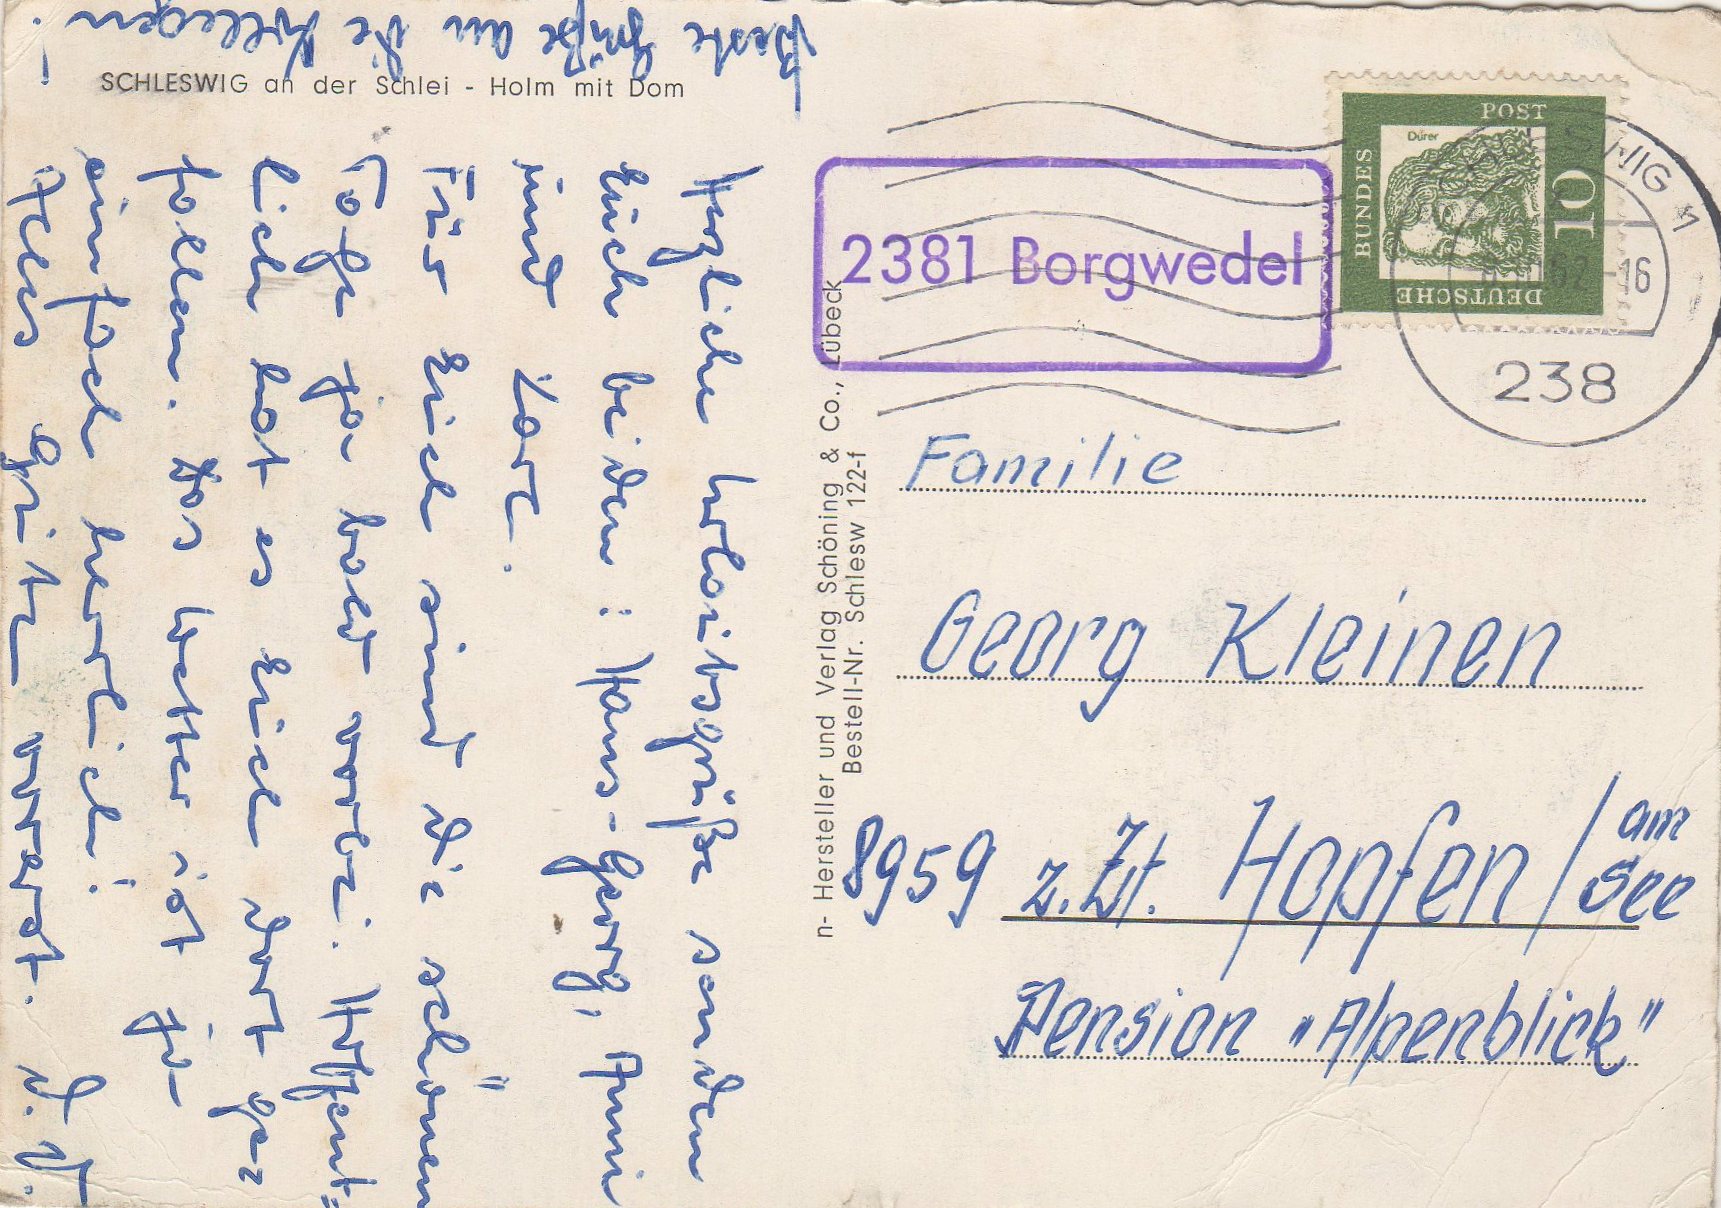 SCHLESWIG an der Schlei - Holm mit Dom
Beste Grüße an die Kollegen!
Herzliche Urlaubsgrüße senden
Euch beiden: Hans-Georg, Anni
und
Für Euch sind die schönen
Tage ja bald vorbei. Hoffent-
lich hat es Euch dort ge-
fallen. Das Wetter ist ja
einfach herrlich!
Alles Gute
n- Hersteller und Verlag Schöning & Co., Lübeck
Bestell-Nr. Schlesw 122-f
2381 Borgwedel
DEUTSCHE
BUNDES
POST
10
Dürer
SWIG 1
62-16
238
Familie
Georg Kleinen
8959 z.Zt. Hopfen / am See
Pension „Alpenblick"